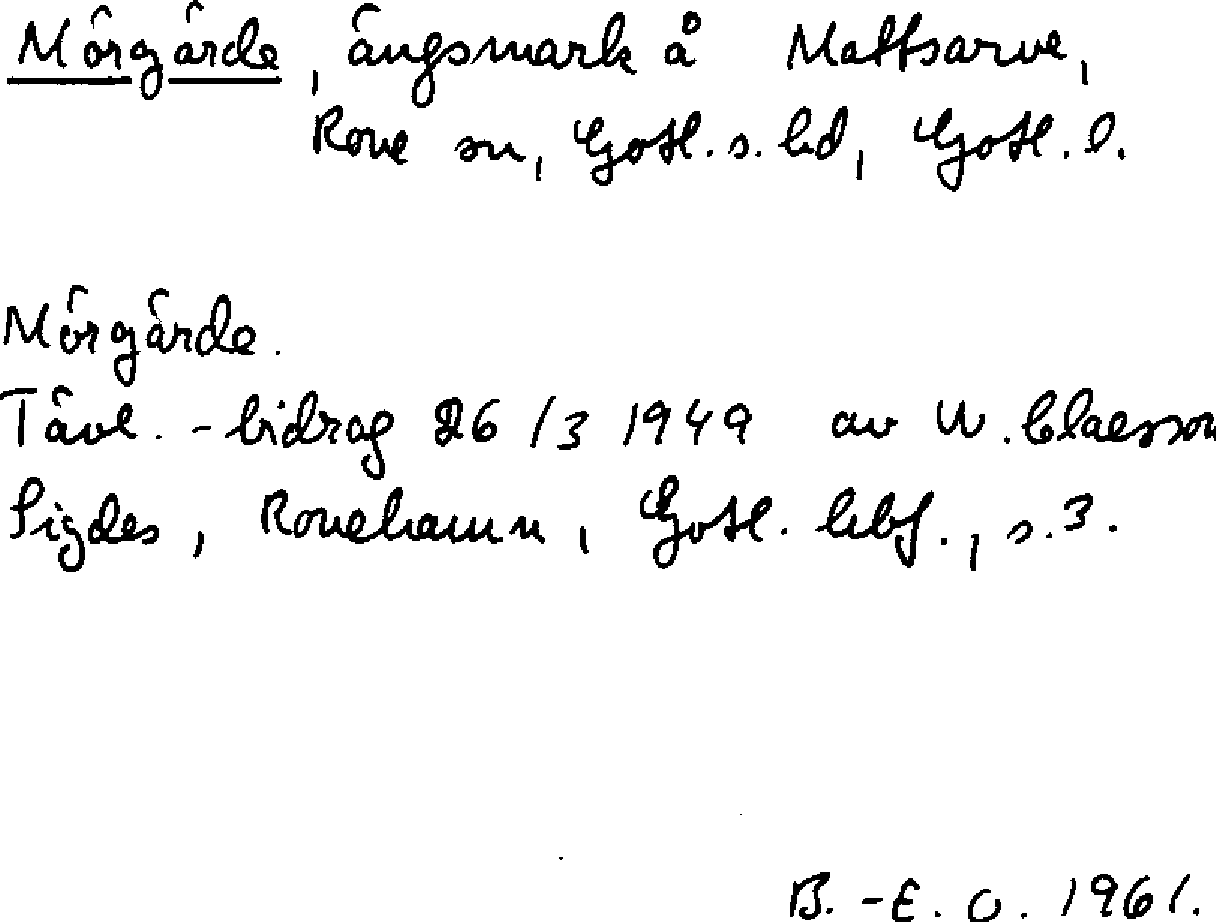 Mörgärde, ängsmark å Mattsarve,
Rone sn, Gotl. s. hd, Gotl. l.
Mörgärde.
Tävl.-bidrag 26/3 1949 av W. Claesson
Sigdes, Ronehamn, Gotl. , s. 3.
B.-E. O. 1961.